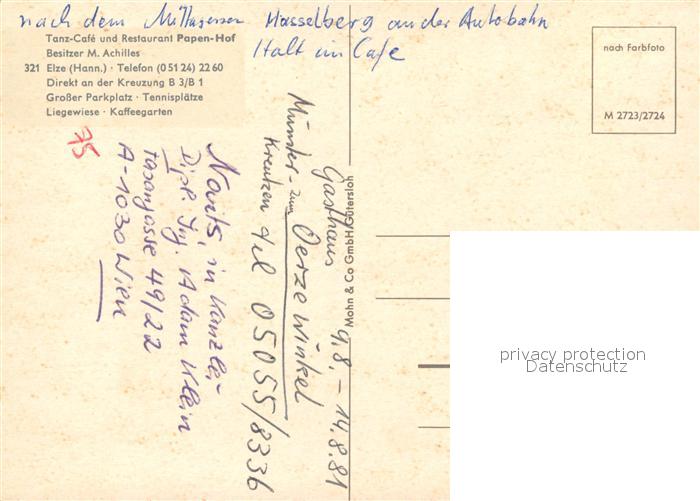 nach dem Mittagessen Hasselberg an der Autobahn
Halt im Cafe
Tanz-Café und Restaurant Papen-Hof
Besitzer M. Achilles
321 Elze (Hann.) · Telefon (0 51 24) 22 60
Direkt an der Kreuzung B 3/B 1
Großer Parkplatz · Tennisplätze
Liegewiese · Kaffeegarten
nach Farbfoto
M 2723/2724
75
Gasthaus 9.8. – 14.8.81
Münster - zum Oerzewinkel
Kreutzen tel 05055/8336
in Kanzlei
Dipl. Ing. Adam Klein
49/22
A-1030 Wien
Mohn & Co GmbH Gütersloh
privacy protection
Datenschutz